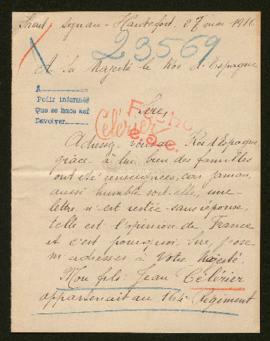 Hautefort, 27 mai 1916
23569
A Sa Majesté le Roi d'Espagne
A
Pedir informes
Que se hace así
Devolver
Sire,
Célérier
Ficha
Adressez-vous au Roi d'Espagne
grâce à lui bien des familles
ont été renseignées, car jamais,
aussi humble soit-elle, une
lettre n'est restée sans réponse,
telle est l'opinion de France
et c'est pourquoi Sire, j'ose
m'adresser à Votre Majesté.
Mon fils Jean Célérier
appartenait au Régiment